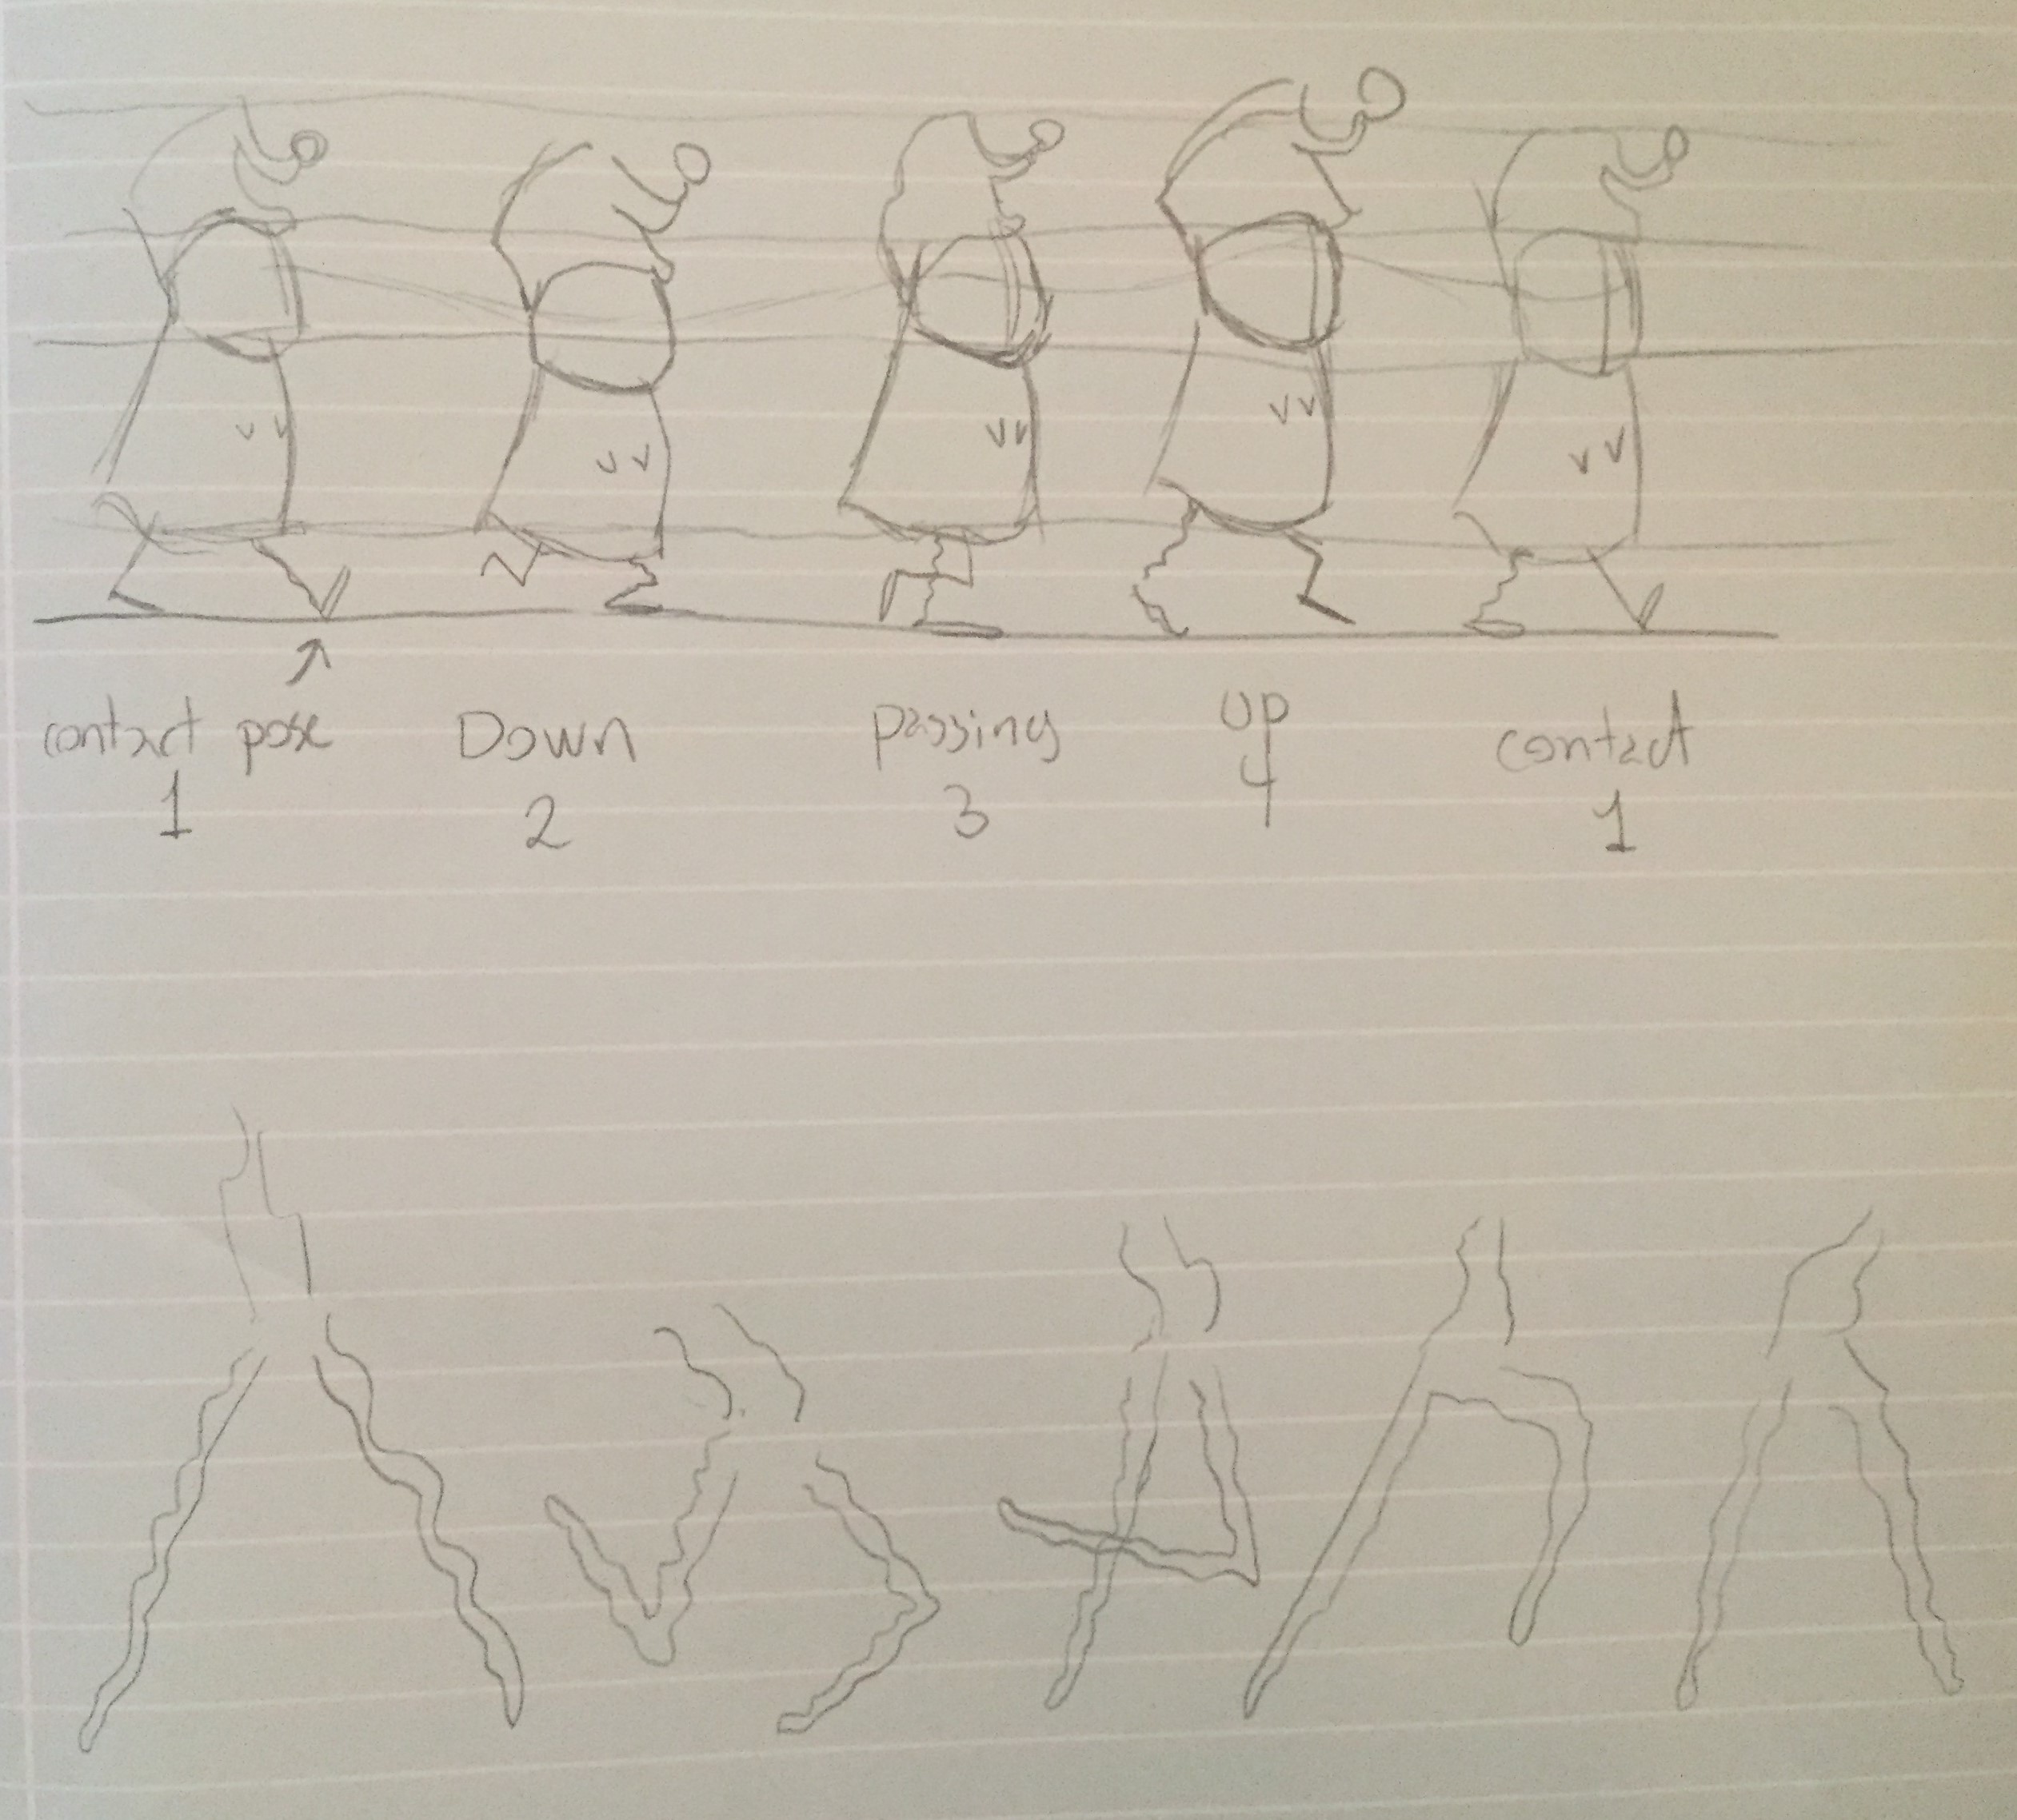 contact pose
1
Down
2
passing
3
up
4
contact
1